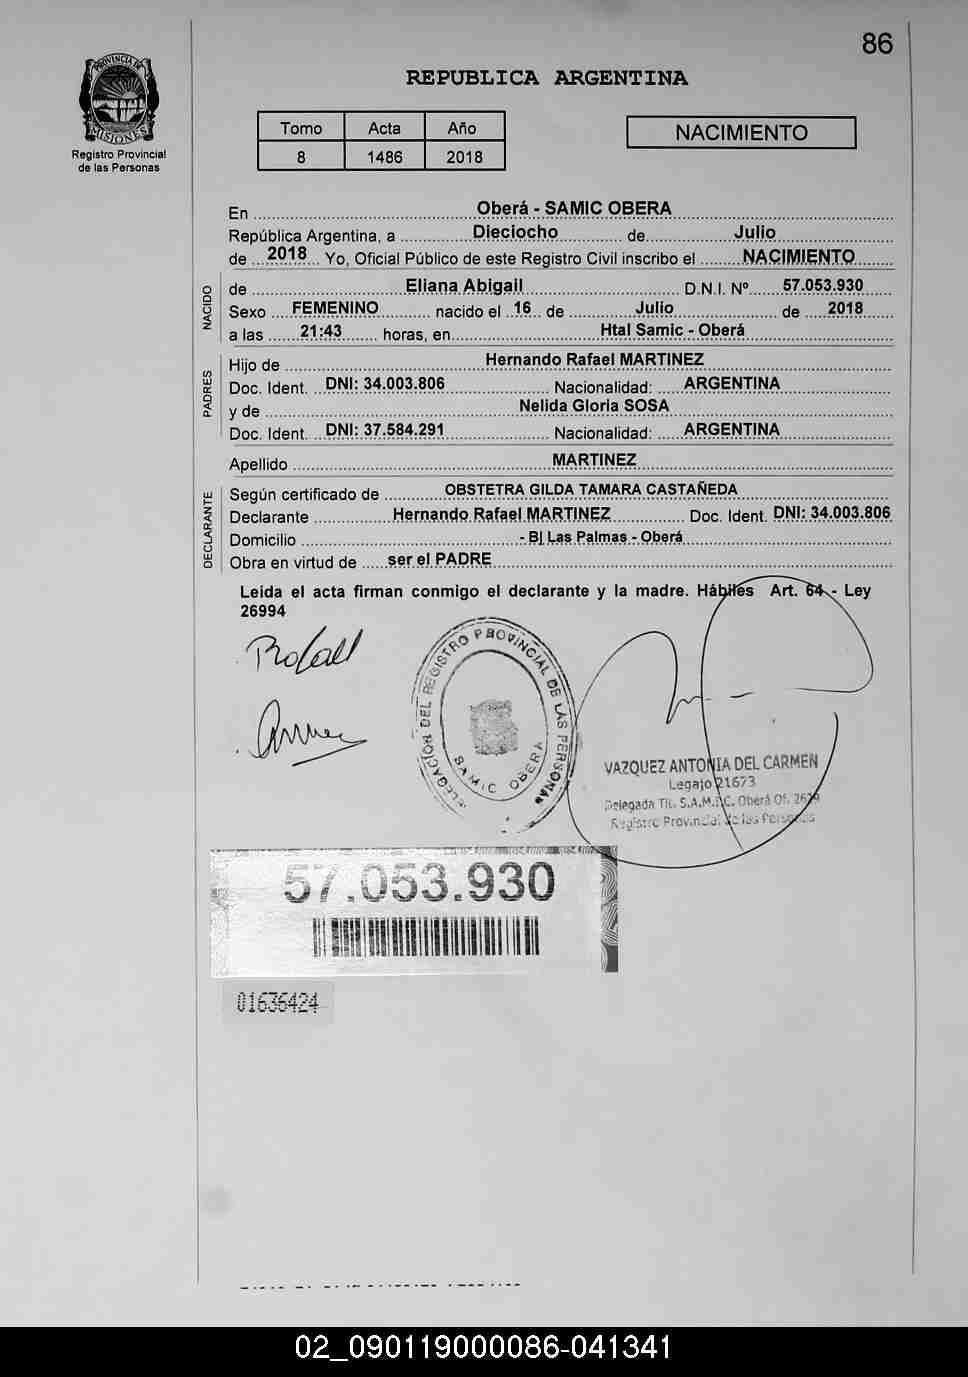 86
PROVINCIA DE
MISIONES
Registro Provincial
de las Personas
REPUBLICA ARGENTINA
Tomo Acta Año
8 1486 2018
NACIMIENTO
En Oberá - SAMIC OBERA
República Argentina, a Dieciocho de Julio
de 2018 Yo, Oficial Público de este Registro Civil inscribo el NACIMIENTO
NACIDO
de Eliana Abigail D.N.I. Nº 57.053.930
Sexo FEMENINO nacido el 16 de Julio de 2018
a las 21:43 horas, en Htal Samic - Oberá
PADRES
Hijo de Hernando Rafael MARTINEZ
Doc. Ident. DNI: 34.003.806 Nacionalidad: ARGENTINA
y de Nelida Gloria SOSA
Doc. Ident. DNI: 37.584.291 Nacionalidad: ARGENTINA
Apellido MARTINEZ
DECLARANTE
Según certificado de OBSTETRA GILDA TAMARA CASTAÑEDA
Declarante Hernando Rafael MARTINEZ Doc. Ident. DNI: 34.003.806
Domicilio - B| Las Palmas - Oberá
Obra en virtud de ser el PADRE
Leida el acta firman conmigo el declarante y la madre. Hábiles Art. 64 - Ley
26994
DELEGACIÓN DEL REGISTRO PROVINCIAL DE LAS PERSONAS
SAMIC OBERA
VAZQUEZ ANTONIA DEL CARMEN
Legajo 21673
Delegada Tit. S.A.M.I.C. Oberá Of. 2679
Registro Provincial de las Personas
57.053.930
01636424
02_090119000086-041341